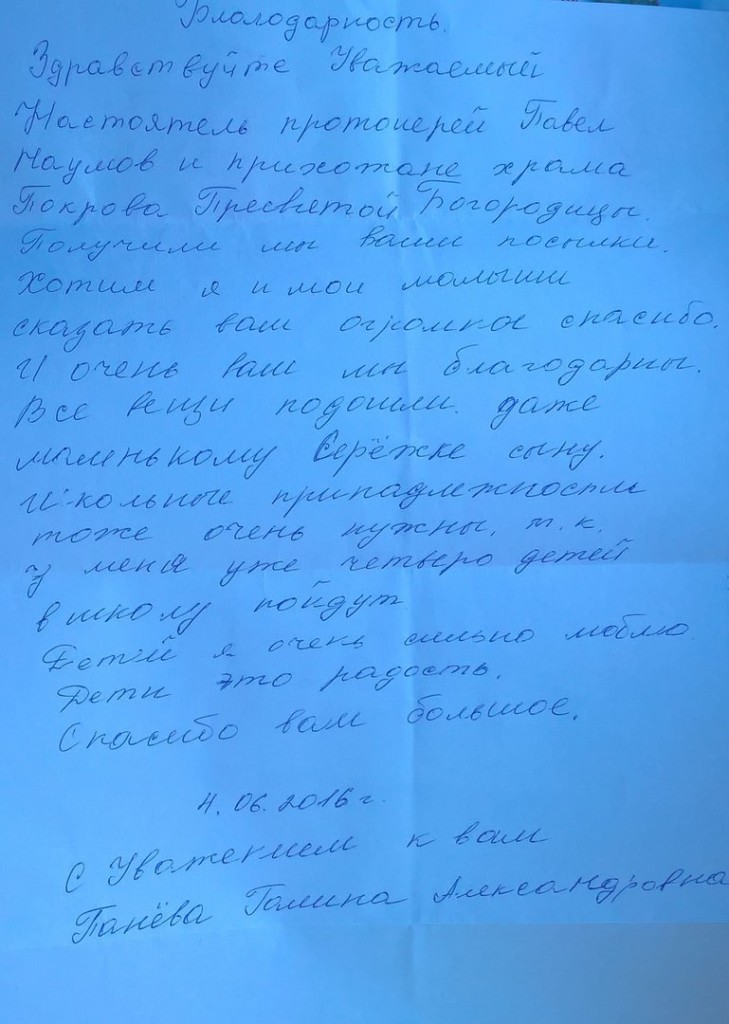 Блолодарность.
Здравствуйте Уважаемый
Настоятель протоиерей Павел
Наумов и прихожане храма
Покрова Пресветой Богородицы.
Получили мы ваши посылки.
Хотим я и мои малыши
сказать вам огромное спасибо.
И очень вам мы благодарны.
Все вещи подошли. даже
маленькому Серёжке сыну.
Школьные принадлежности
тоже очень нужны, т.к.
у меня уже четверо детей
в школу пойдут
Детей я очень сильно люблю.
Дети это радость.
Спасибо вам большое.
4.06.2016г.
С Уважением к вам
Панёва Галина Александровна